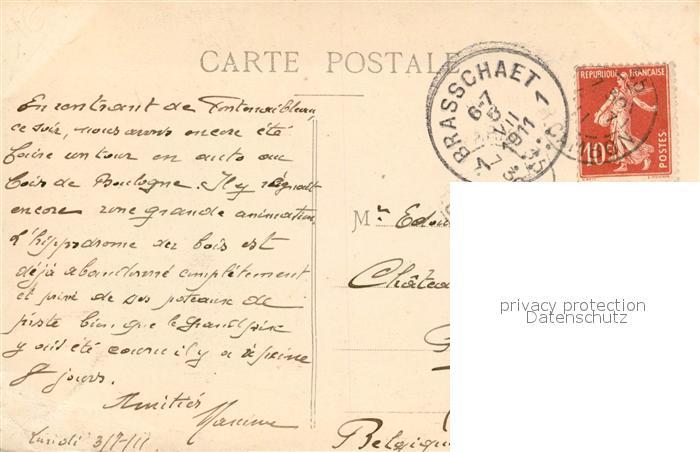 CARTE POSTALE
En rentrant de Fontainebleau,
ce soir, nous avons encore été
faire un tour en auto au
bois de Boulogne. Il y régnait
encore une grande animation,
L'hippodrome du bois est
déjà abandonné complètement
et privé de ses poteaux de
piste bien que le grand prix
y ait été couru il y a à peine
8 jours.
Amitiés
Maxime
Lundi 3/7-/11
BRASSCHAET 1
6-7
1911
REPUBLIQUE FRANÇAISE
10c
POSTES
Mr
Château
Belgique
privacy protection
Datenschutz